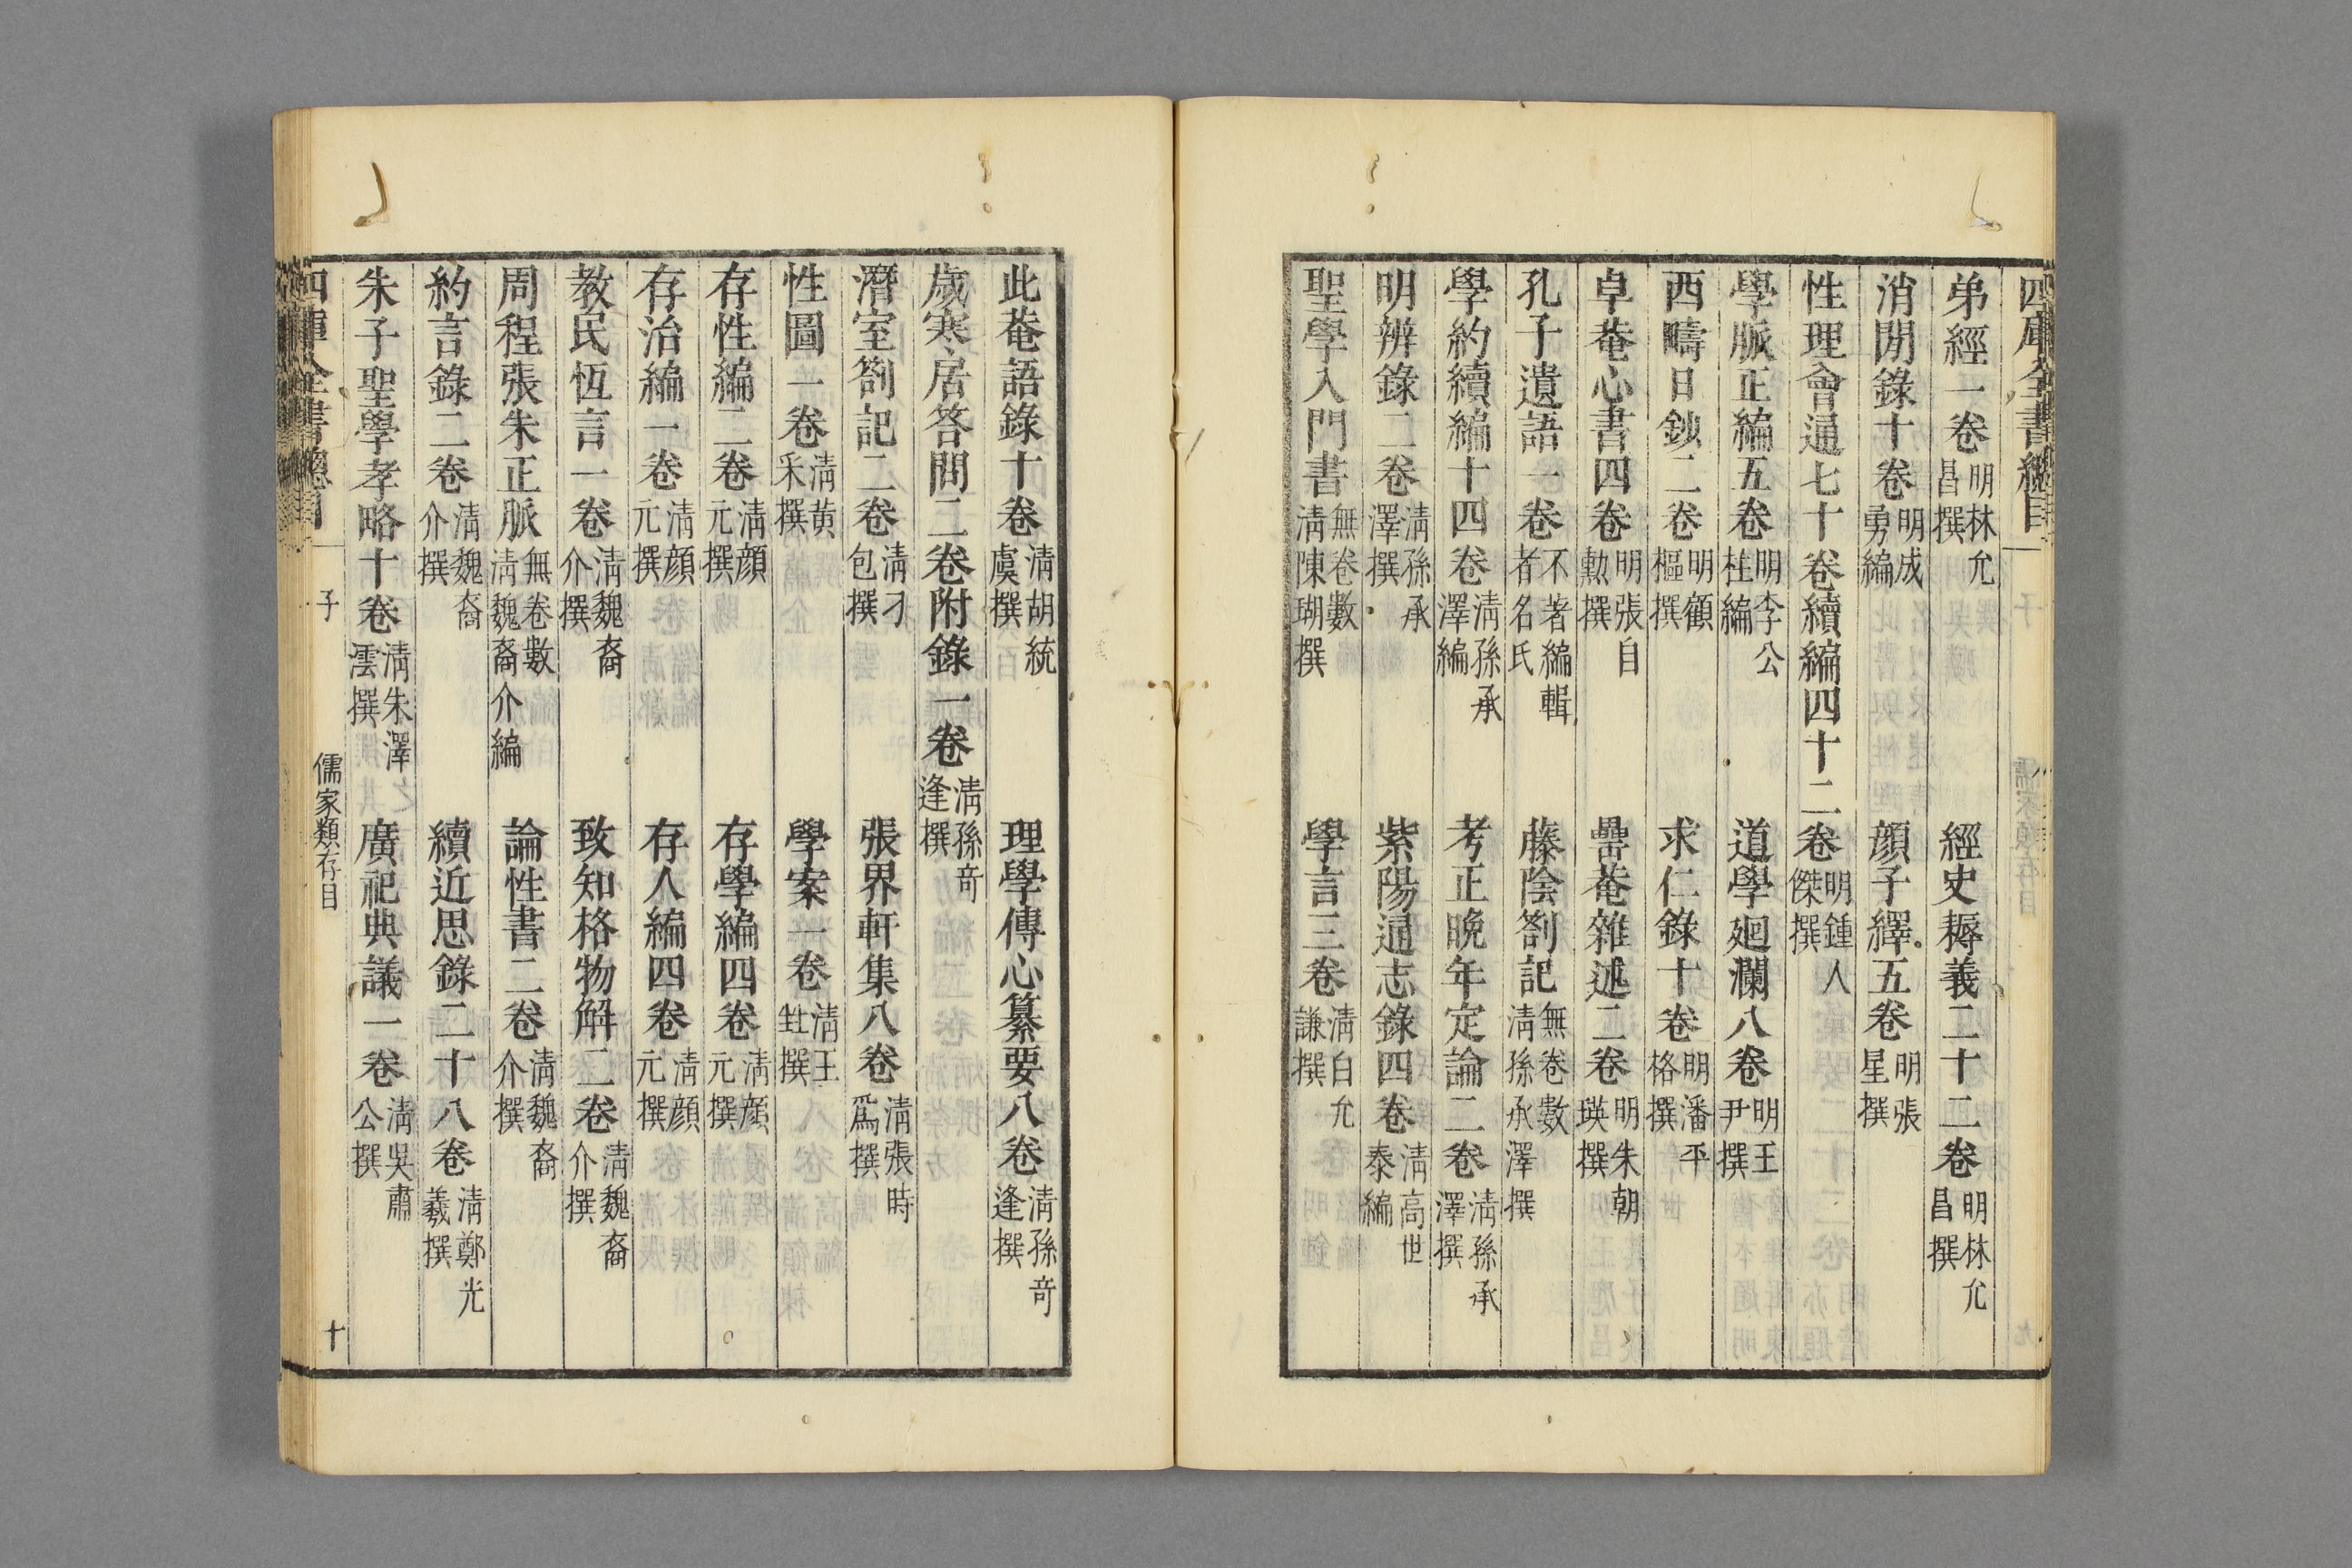 四庫全書總目
弟經一卷 明林允昌撰 經史耨義二十二卷 明林允昌撰
消閒錄十卷 明成勇編 顏子繹五卷 明張星撰
性理會通七十卷續編四十二卷 明鍾人傑撰
學脈正編五卷 明李公柱編 道學廻瀾八卷 明王尹撰
西疇日鈔二卷 明顧樞撰 求仁錄十卷 明潘平格撰
卓菴心書四卷 明張自勲撰 罍菴雜述二卷 明朱朝瑛撰
孔子遺語一卷 不著編輯者名氏 藤陰劄記 無卷數清孫承澤撰
學約續編十四卷 清孫承澤編 考正晚年定論二卷 清孫承澤撰
明辨錄二卷 清孫承澤撰 紫陽通志錄四卷 清高世泰編
聖學入門書 無卷數清陳瑚撰 學言三卷 清白允謙撰
此菴語錄十卷 清胡統虞撰 理學傳心纂要八卷 清孫奇逢撰
歲寒居答問二卷附錄一卷 清孫奇逢撰
潛室劄記二卷 清刁包撰 張界軒集八卷 清張時爲撰
性圖一卷 清黄采撰 學案一卷 清王甡撰
存性編二卷 清顏元撰 存學編四卷 清顏元撰
存治編一卷 清顏元撰 存人編四卷 清顏元撰
教民恆言一卷 清魏裔介撰 致知格物解二卷 清魏裔介撰
周程張朱正脈 無卷數清魏裔介編 論性書二卷 清魏裔介撰
約言錄二卷 清魏裔介撰 續近思錄二十八卷 清鄭光羲撰
朱子聖學考略十卷 清朱澤澐撰 廣祀典議一卷 清吳肅公撰
四庫全書總目 子 儒家類存目 十